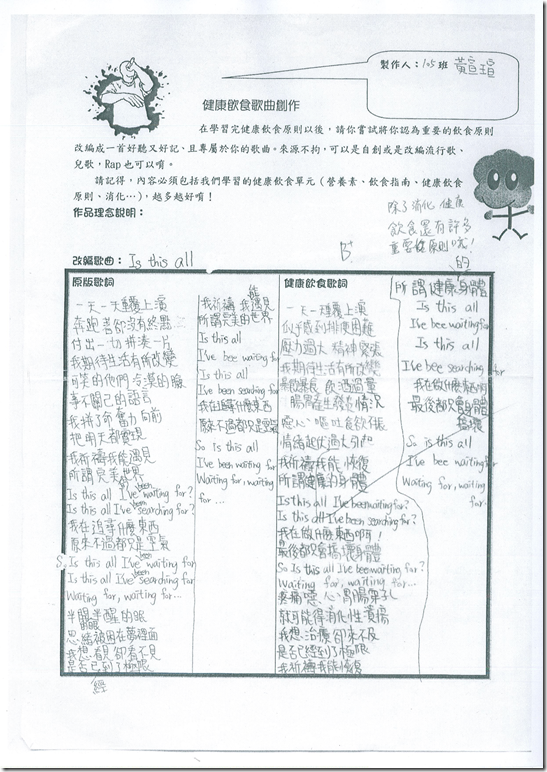 製作人：105班 黃宣瑄
健康飲食歌曲創作
在學習完健康飲食原則以後，請你嘗試將你認為重要的飲食原則
改編成一首好聽又好記、且專屬於你的歌曲。來源不拘，可以是自創或是改編流行歌、
兒歌，Rap也可以唷。
請記得，內容必須包括我們學習的健康飲食單元（營養素、飲食指南、健康飲食
原則、消化…），越多越好唷！
作品理念說明：
除了消化 健康
飲食還有許多
重要的原則哦！
B+
改編歌曲： Is this all
原版歌詞
一天一天重覆上演
奔跑著卻沒有終點
付出一切拼湊一片
我期待生活有所改變
可笑的他們 冷漠的臉
事不關己的語言
我拼了命奮力向前
把明天都實現
我祈禱我能遇見
所謂完美世界
Is this all I've been waiting for?
Is this all I've been searching for?
我在追尋什麼東西
原來不過都只是空氣
So, Is this all I've been waiting for
Is this all I've been searching for
Waiting for, waiting for...
半開半醒的眼
思緒被困在夢裡面
我想看見 卻看不見
是否已經到了極限
我祈禱我能遇見
所謂完美的世界
Is this all
I've been waiting for
Is this all
I've been searching for
我在追尋什麼東西
原來不過都只是空氣
So is this all
I've been waiting for
Waiting for, waiting
for...
健康飲食歌詞
一天一天重覆上演
似乎感到排便困難
壓力過大 精神緊張
我期待生活有所改變
暴飲暴食 飲酒過量
胃腸產生發炎情況
噁心、嘔吐食欲不振
情緒起伏過大引起
我祈禱我能恢復
所謂健康的身體
Is this all I've bee waiting for?
Is this all I've been searching for?
我在做什麼東西啊！
最後都只會搞壞身體
So Is this all I've bee waiting for?
Waiting for, waiting for...
疼痛噁心、胃腸穿孔
就可能得消化性潰瘍
我想治療 卻來不及
是否已經到了極限
我祈禱我能恢復
所謂健康的身體
Is this all
I've bee waiting for
Is this all
I've bee searching for
我在做什麼東西啊
最後都只會身體
搞壞
So is this all
I've bee waiting for
Waiting for, waiting
for.